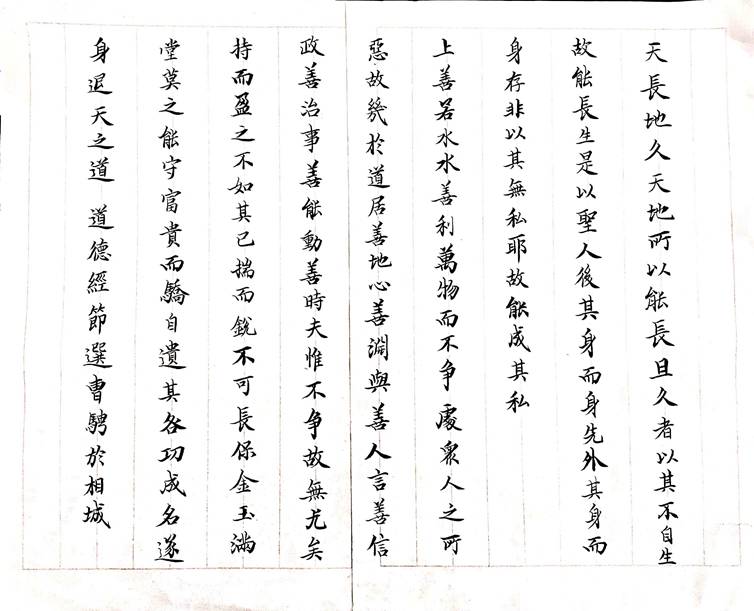 天長地久天地所以能長且久者以其不自生
故能長生是以聖人後其身而身先外其身而
身存非以其無私耶故能成其私
上善若水水善利萬物而不争處衆人之所
惡故幾於道居善地心善淵與善人言善信
政善治事善能動善時夫惟不争故無尤矣
持而盈之不如其已揣而銳不可長保金玉滿
堂莫之能守富貴而驕自遺其咎功成名遂
身退天之道 道德經節選曹騁於相城